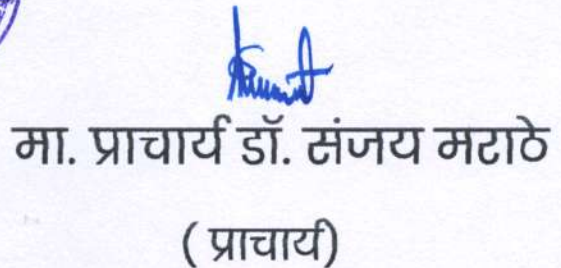 मा. प्राचार्य डॉ. संजय मराठे
( प्राचार्य)